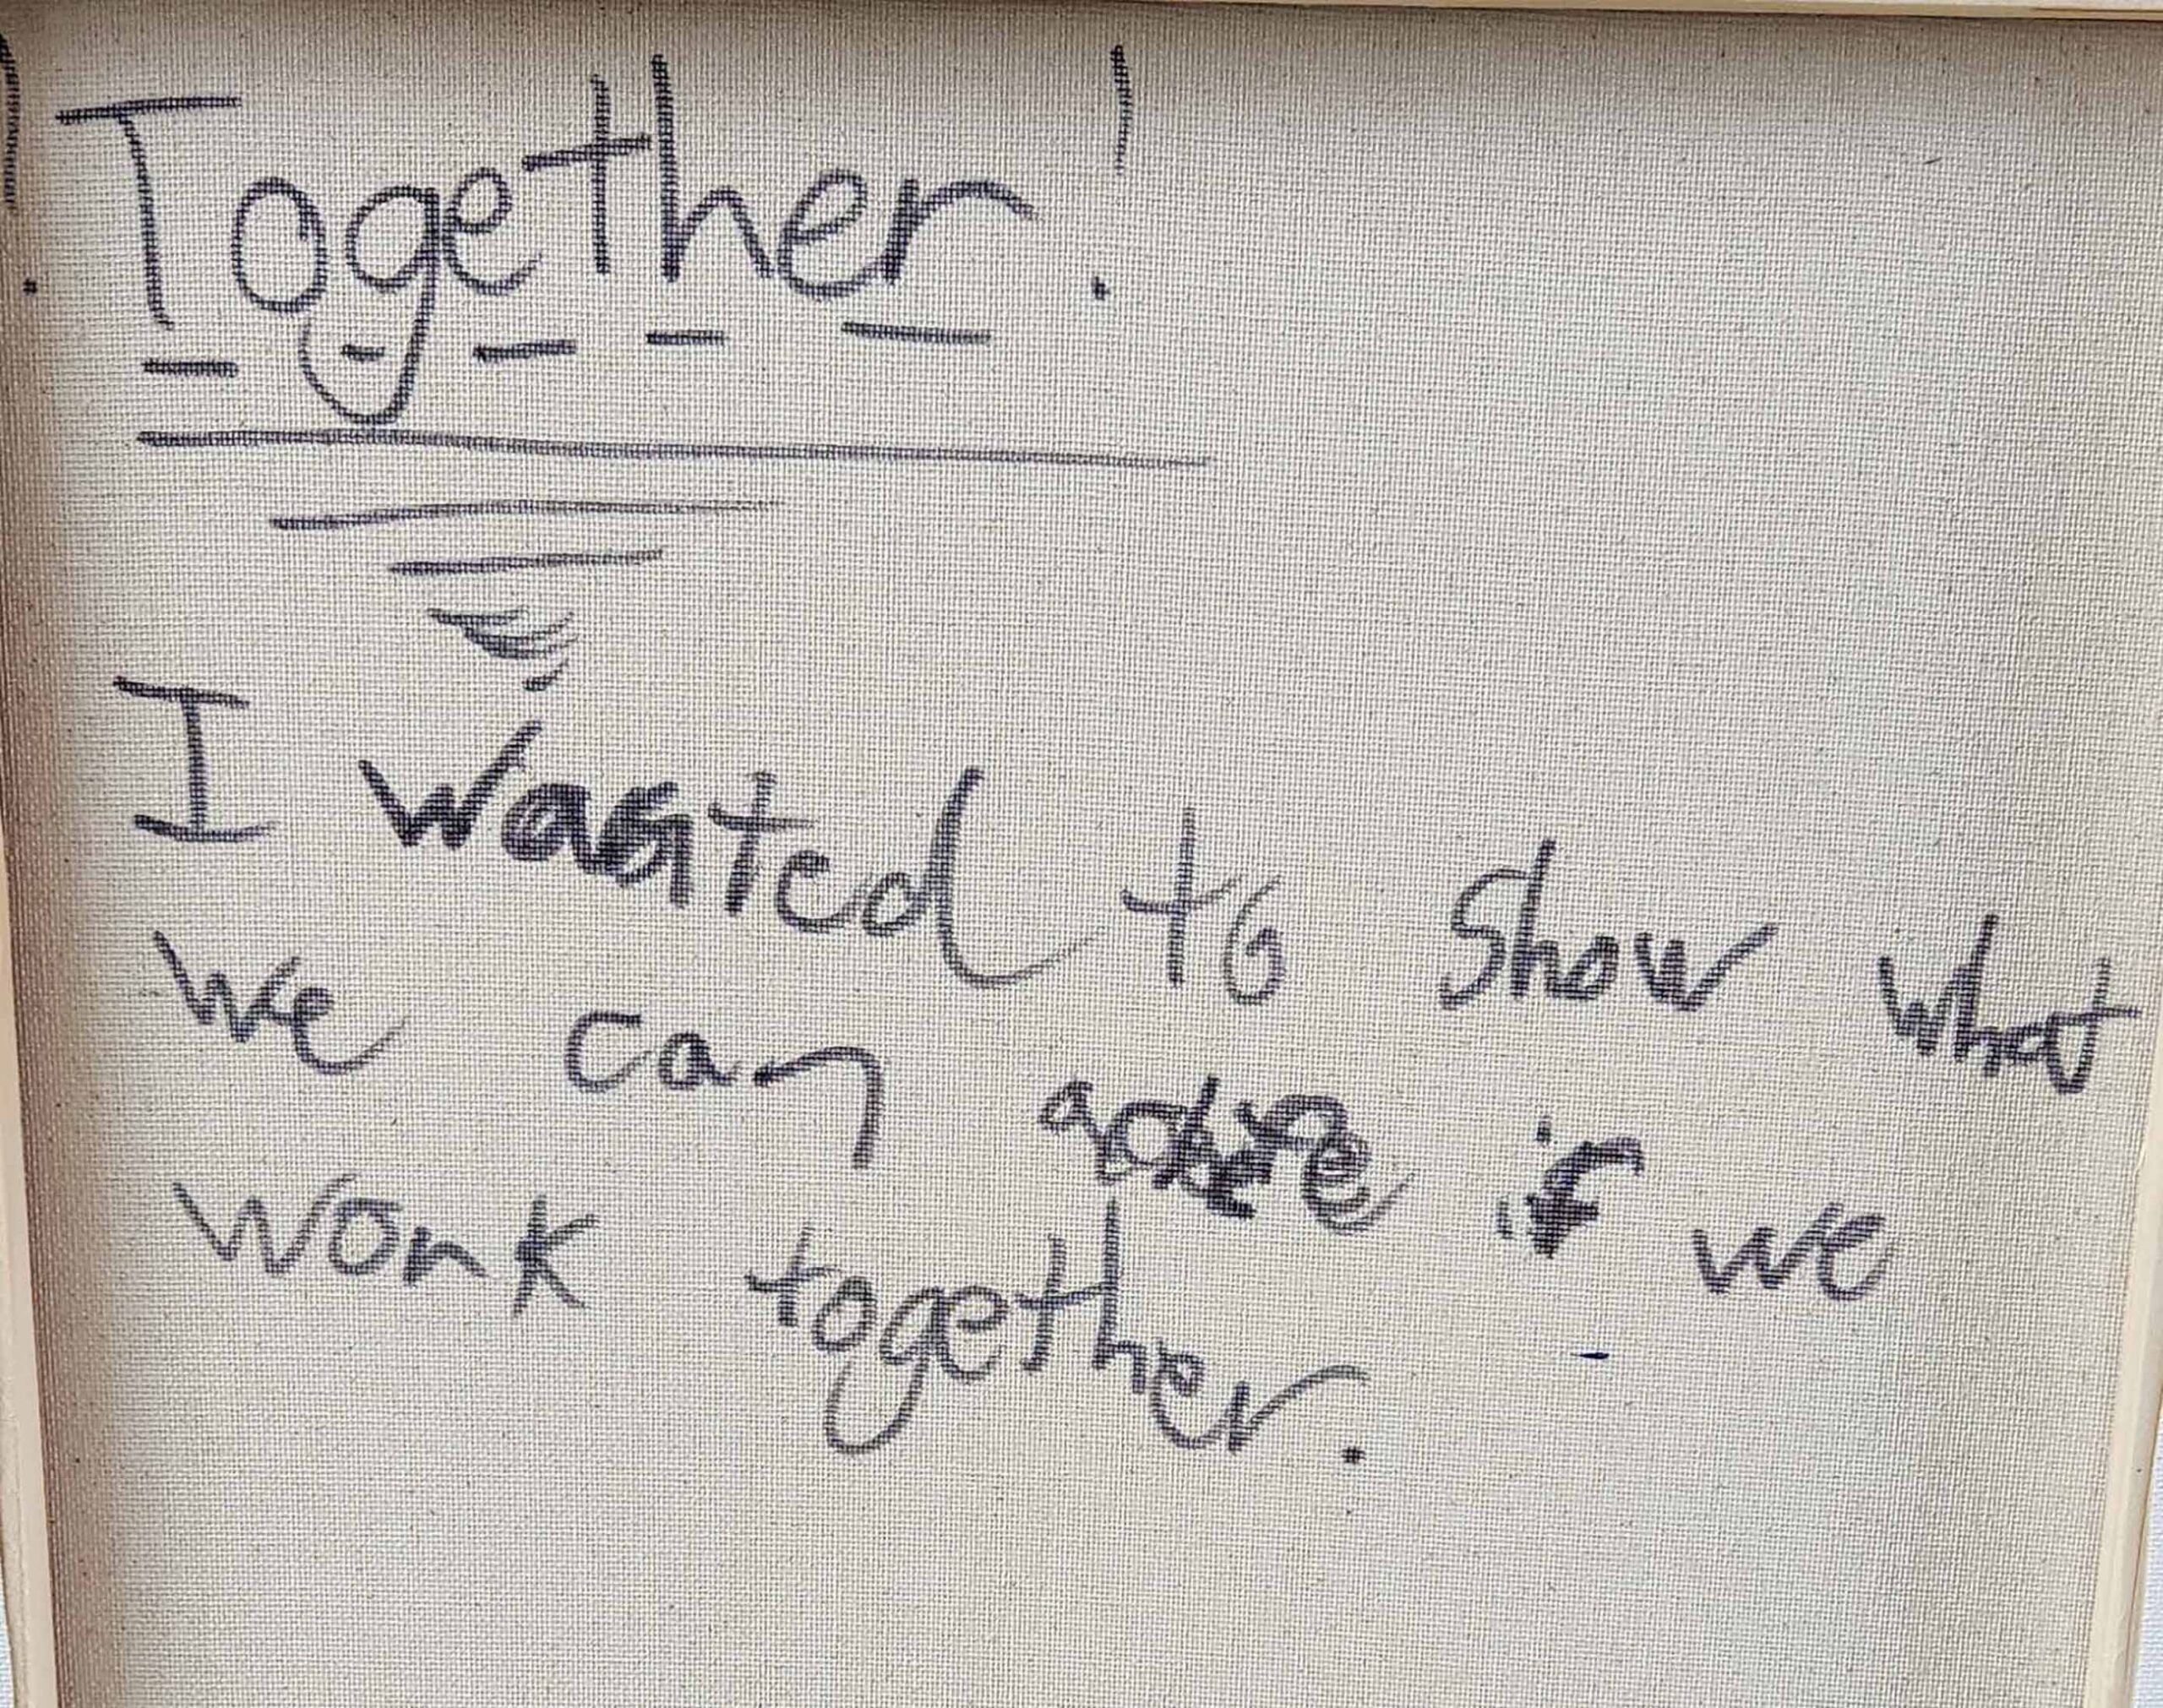 Together!
I wanted to show what
we can if we
work together.